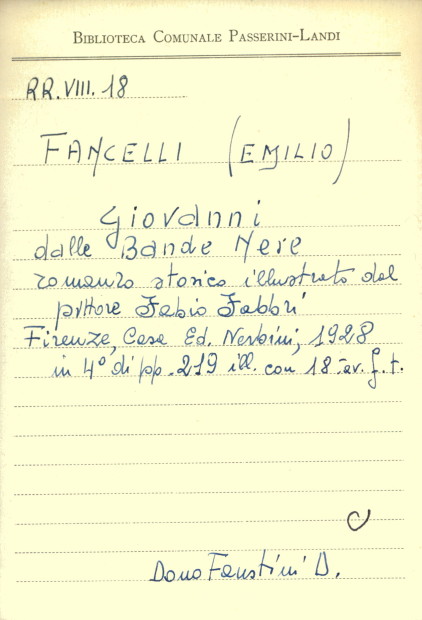 BIBLIOTECA COMUNALE PASSERINI-LANDI
RR.VIII.18
FANCELLI (EMILIO)
Giovanni
dalle Bande Nere
romanzo storico illustrato dal
pittore Fabio Fabbri
Firenze, Casa Ed. Nerbini, 1928
in 4°, di pp. 219 ill. con 18 tav. f. t.
C
Dono Faustini D.